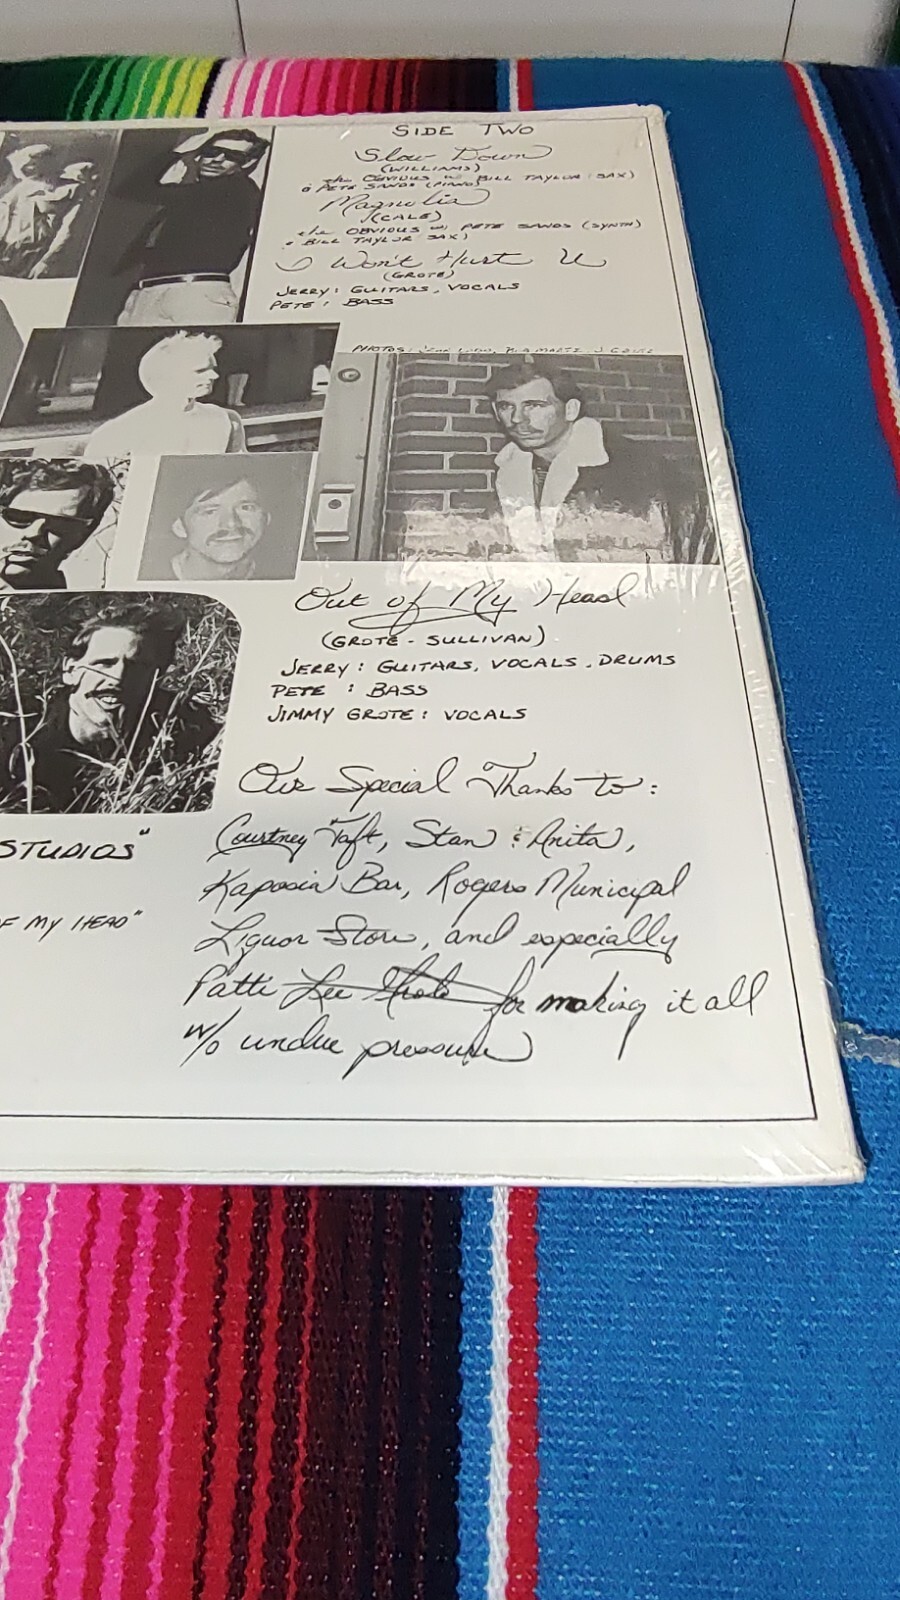 SIDE TWO
Slow Down
(WILLIAMS)
the OBVIOUS w BILL TAYLOR (SAX)
& PETE SANDS (PIANO)
Magnolia
(CALE)
the OBVIOUS w/ PETE SANDS (SYNTH)
& BILL TAYLOR (SAX)
I Won't Hurt U
(GROTE)
JERRY: GUITARS, VOCALS
PETE: BASS
PHOTOS:
Out of My Head
(GROTE - SULLIVAN)
JERRY: GUITARS, VOCALS, DRUMS
PETE : BASS
JIMMY GROTE: VOCALS
Our Special Thanks to:
Courtney Taft, Stan & Anita,
STUDIOS"
Kaposia Bar, Rogers Municipal
OF MY HEAD"
Liquor Store, and especially
Patti Lee Grote for making it all
w/o undue pressure